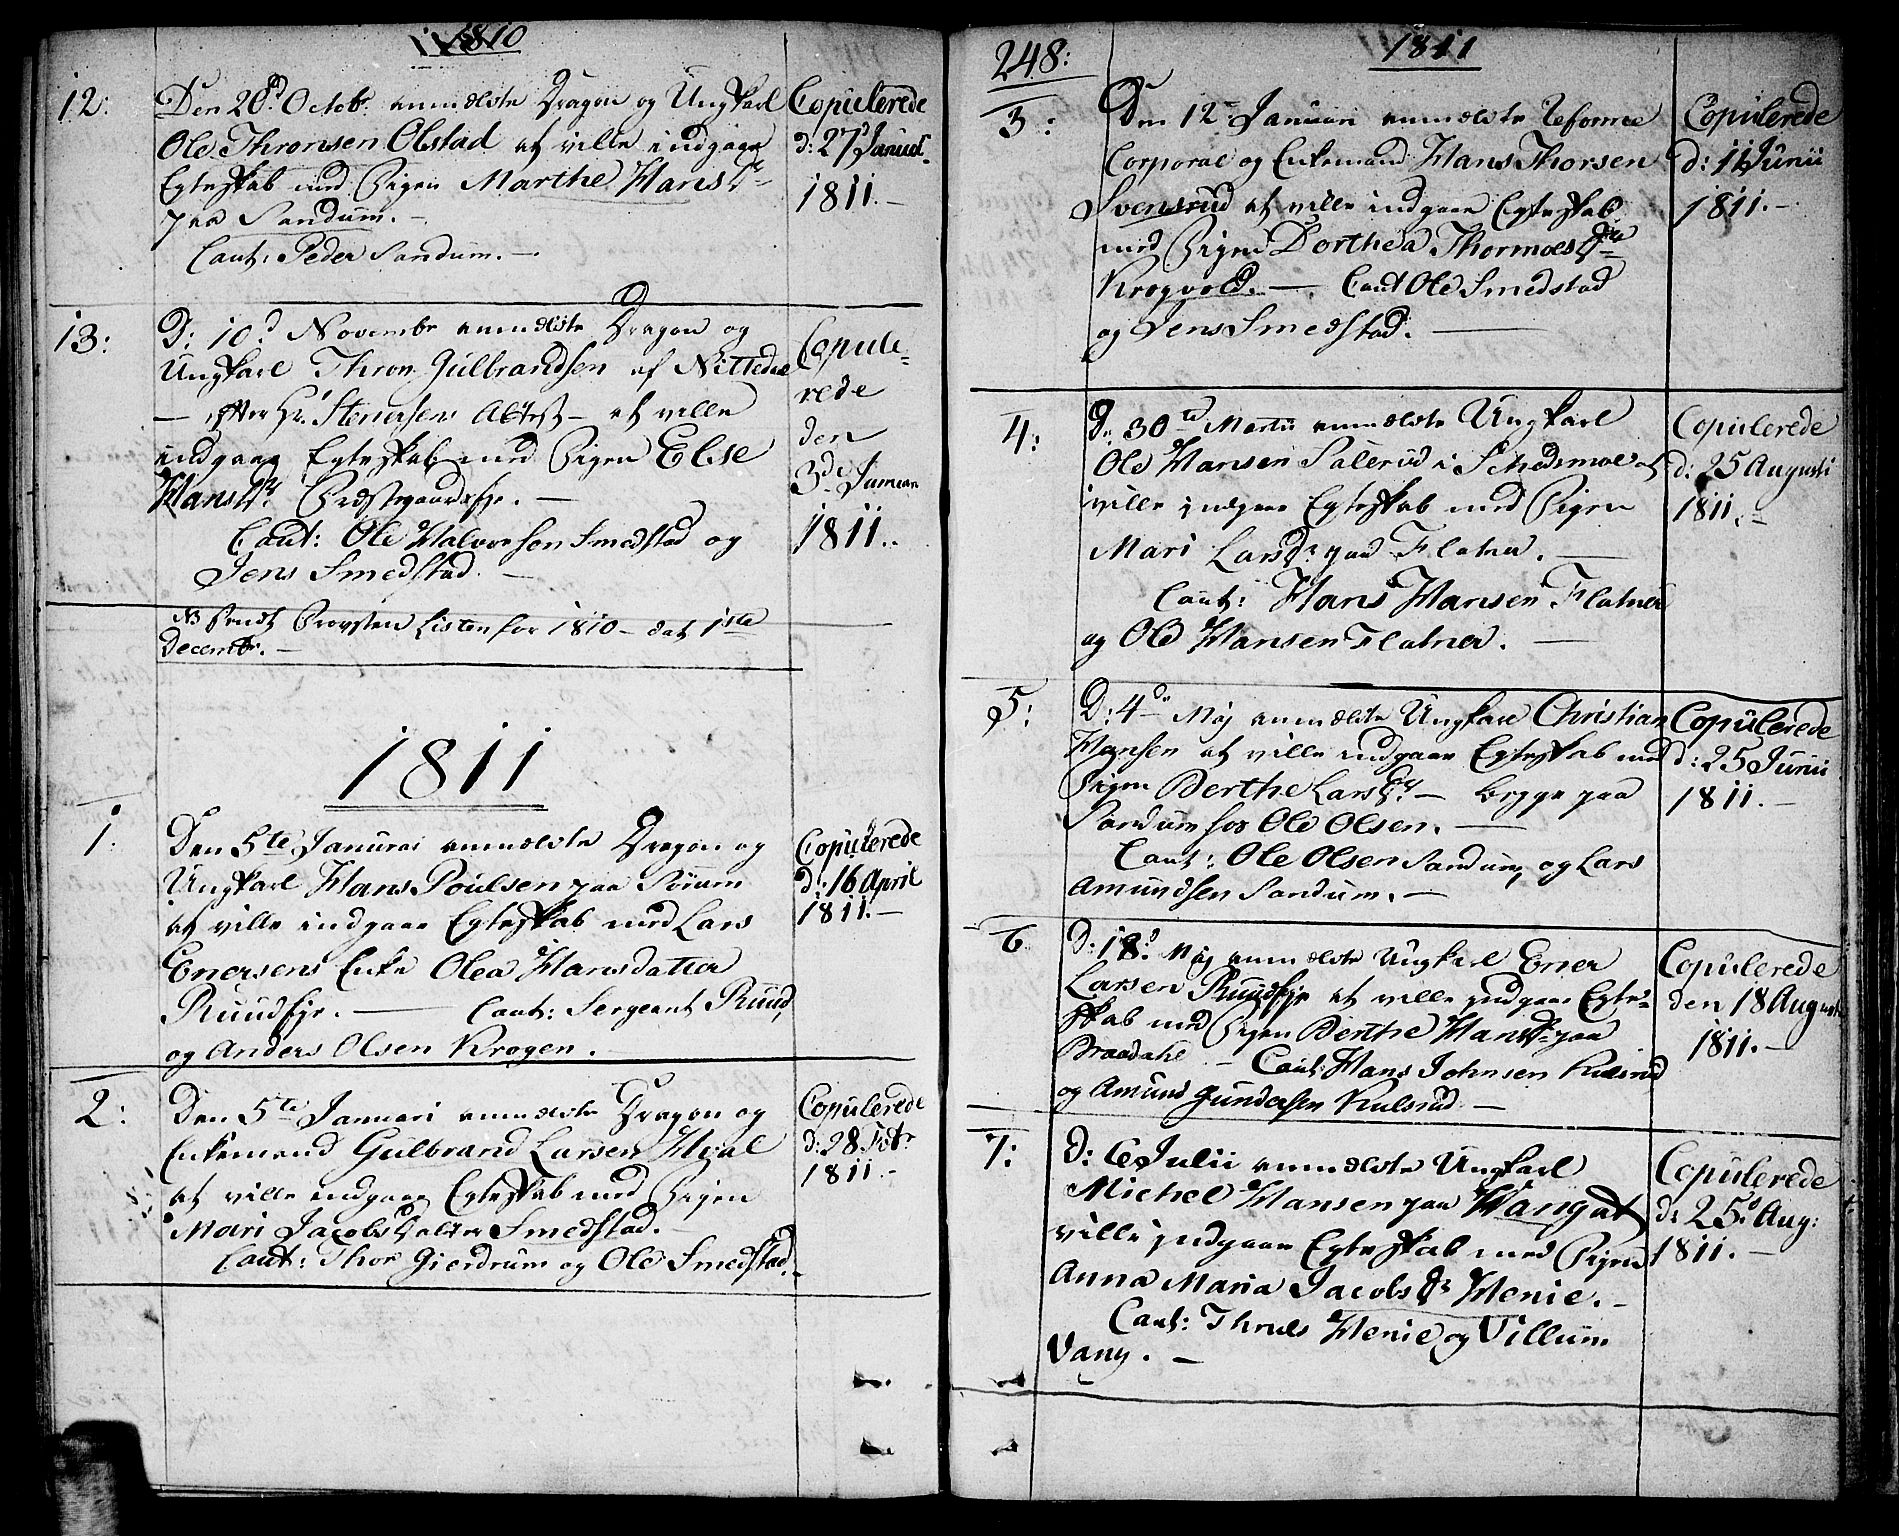 1810
12:
Den 20d Octob. anmeldte Dragon og Ungkarl
Ole Thronsen Olstad at ville indgaae
Egteskab med Pigen Marthe Hansdr
paa Sandum. -
Caut: Peder Sandum. -
Copulerede
d: 27d Januar
1811. -
13:
D: 10d Novembr anmeldte Dragon og
Ungkarl Thron Gulbrandsen af Nittedal
- efter Hr. Stenersens Attest - at ville
indgaae Egteskab med Pigen Else
Hansdr Præstegaardsejr. -
Caut: Ole Halvorsen Smedstad og
Jens Smedstad. -
Copule=
rede
den
3de Januar
1811. -
NB Sendt Provsten Listen for 1810 - dat 1ste
Decembr. -
1811
1.
Den 5te Januari anmeldte Dragon og
Ungkarl Hans Poulsen paa Sörum
at ville indgaae Egteskab med Lars
Enersens Enke Olea Hansdatter
Ruudejr. - Caut: Sergeant Ruud,
og Anders Olsen Krogen.
Copulerede
d: 16 April
1811. -
2:
Den 5te Januari anmeldte Dragon og
Enkemand Gulbrand Larsen Hval
at ville indgaae Egteskab med Pigen
Mari Jacobsdatter Smedstad.
Caut: Thor Gierdrum og Ole Smedstad. -
Copulerede
d: 28 Febr
1811. -
248:
1811
3:
Den 12te Januari anmeldte Reforme
Corporal og Enkemand Hans Thorsen
Svensrud at ville indgaae Egteskab
med Pigen Dorthea Thormoesdr
Krogvold. - Caut Ole Smedstad
og Jens Smedstad. -
Copulerede
d: 11 Junii
1811. -
4:
D. 30te Martii anmeldte Ungkarl
Ole Hansen Salerud i Schedsmoe at
ville indgaae Egteskab med Pigen
Mari Larsdr paa Flatner. -
Caut: Hans Hansen Flatner
og Ole Hansen Flatner. -
Copulerede
d: 25 Augusti
1811. -
5:
D: 4de Maj anmeldte Ungkarl Christian
Hansen at ville indgaae Egteskab med
Pigen Berthe Larsdr - begge paa
Sandum hos Ole Olsen. -
Caut: Ole Olsen Sandum, og Lars
Amundsen Sandum. -
Copulerede
d: 25 Junii
1811. -
6
D: 18d Maj anmeldte Ungkarl Ener
Larsen Ruudejr at ville indgaae Egte=
skab med Pigen Berthe Hansdr paa
Braadahl - Caut: Hans Johnsen Kulsrud
og Amund Gundersen Kulsrud -
Copulerede
den 18 August
1811. -
7:
D: 6 Julii anmeldte Ungkarl
Michel Hansen paa Wang at
ville indgaae Egteskab med Pigen
Anna Maria Jacobsdr Henie. -
Caut: Thrules Henie og Villum
Vang. -
Copulerede
d: 25d Aug:
1811. -